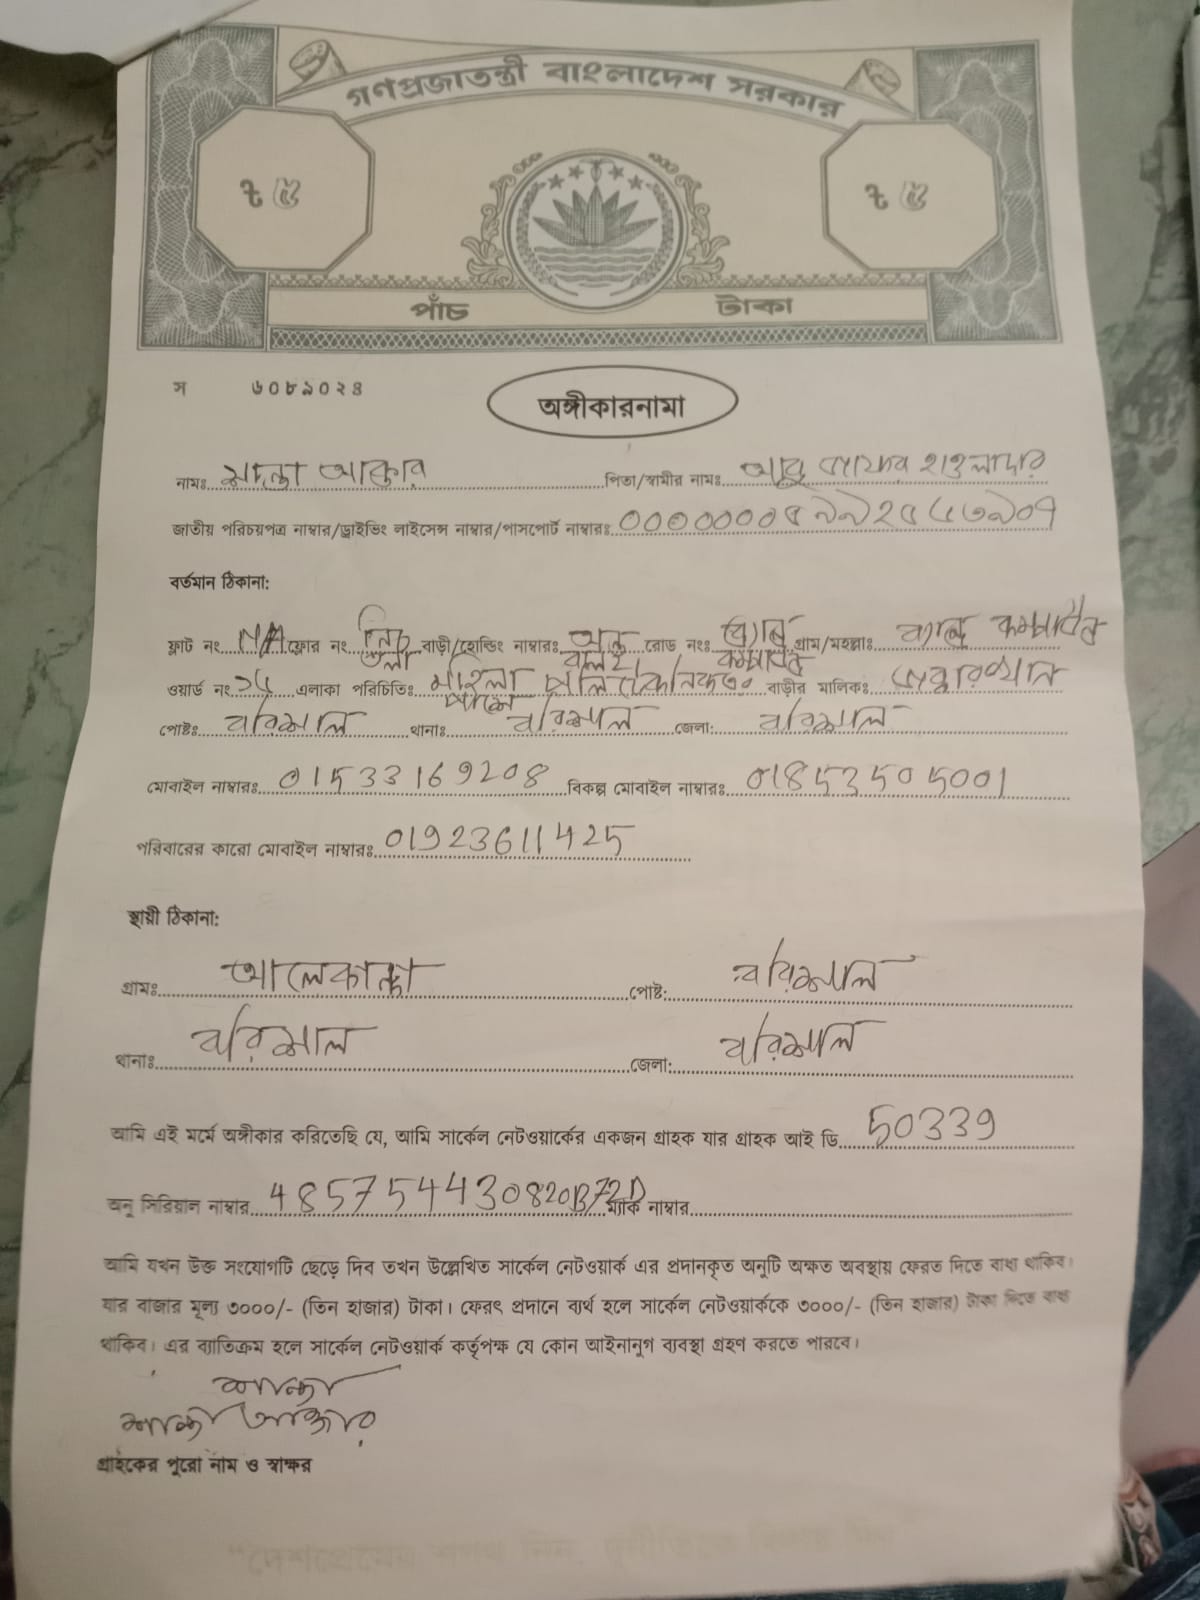 গণপ্রজাতন্ত্রী বাংলাদেশ সরকার
৳ ৫ ৳ ৫
পাঁচ টাকা
স ৬০৮৯০২৪
অঙ্গীকারনামা
নামঃ আক্তার পিতা/স্বামীর নামঃ আবু জাফর হাওলাদার
জাতীয় পরিচয়পত্র নাম্বার/ড্রাইভিং লাইসেন্স নাম্বার/পাসপোর্ট নাম্বারঃ
বর্তমান ঠিকানা:
ফ্লাট নং N/A ফ্লোর নং নিচ তলা বাড়ী/হোল্ডিং নাম্বারঃ রোড নংঃ গ্রাম/মহল্লাঃ
ওয়ার্ড নং ১৫ এলাকা পরিচিতিঃ মহিলা পলিটেকনিকের পাশে বাড়ীর মালিকঃ
পোষ্টঃ বরিশাল থানাঃ বরিশাল জেলা: বরিশাল
মোবাইল নাম্বারঃ 01533169208 বিকল্প মোবাইল নাম্বারঃ 01853505001
পরিবারের কারো মোবাইল নাম্বারঃ 01923611425
স্থায়ী ঠিকানা:
গ্রামঃ আলেকান্দা পোষ্ট: বরিশাল
থানাঃ বরিশাল জেলা: বরিশাল
আমি এই মর্মে অঙ্গীকার করিতেছি যে, আমি সার্কেল নেটওয়ার্কের একজন গ্রাহক যার গ্রাহক আই ডি 50339
অনু সিরিয়াল নাম্বার 485754430820B72D ম্যাক নাম্বার
আমি যখন উক্ত সংযোগটি ছেড়ে দিব তখন উল্লেখিত সার্কেল নেটওয়ার্ক এর প্রদানকৃত অনুটি অক্ষত অবস্থায় ফেরত দিতে বাধ্য থাকিব।
যার বাজার মূল্য ৩০০০/- (তিন হাজার) টাকা। ফেরৎ প্রদানে ব্যর্থ হলে সার্কেল নেটওয়ার্ককে ৩০০০/- (তিন হাজার) টাকা দিতে বাধ্য
থাকিব। এর ব্যতিক্রম হলে সার্কেল নেটওয়ার্ক কর্তৃপক্ষ যে কোন আইনানুগ ব্যবস্থা গ্রহণ করতে পারবে।
আক্তার
গ্রাহকের পুরো নাম ও স্বাক্ষর